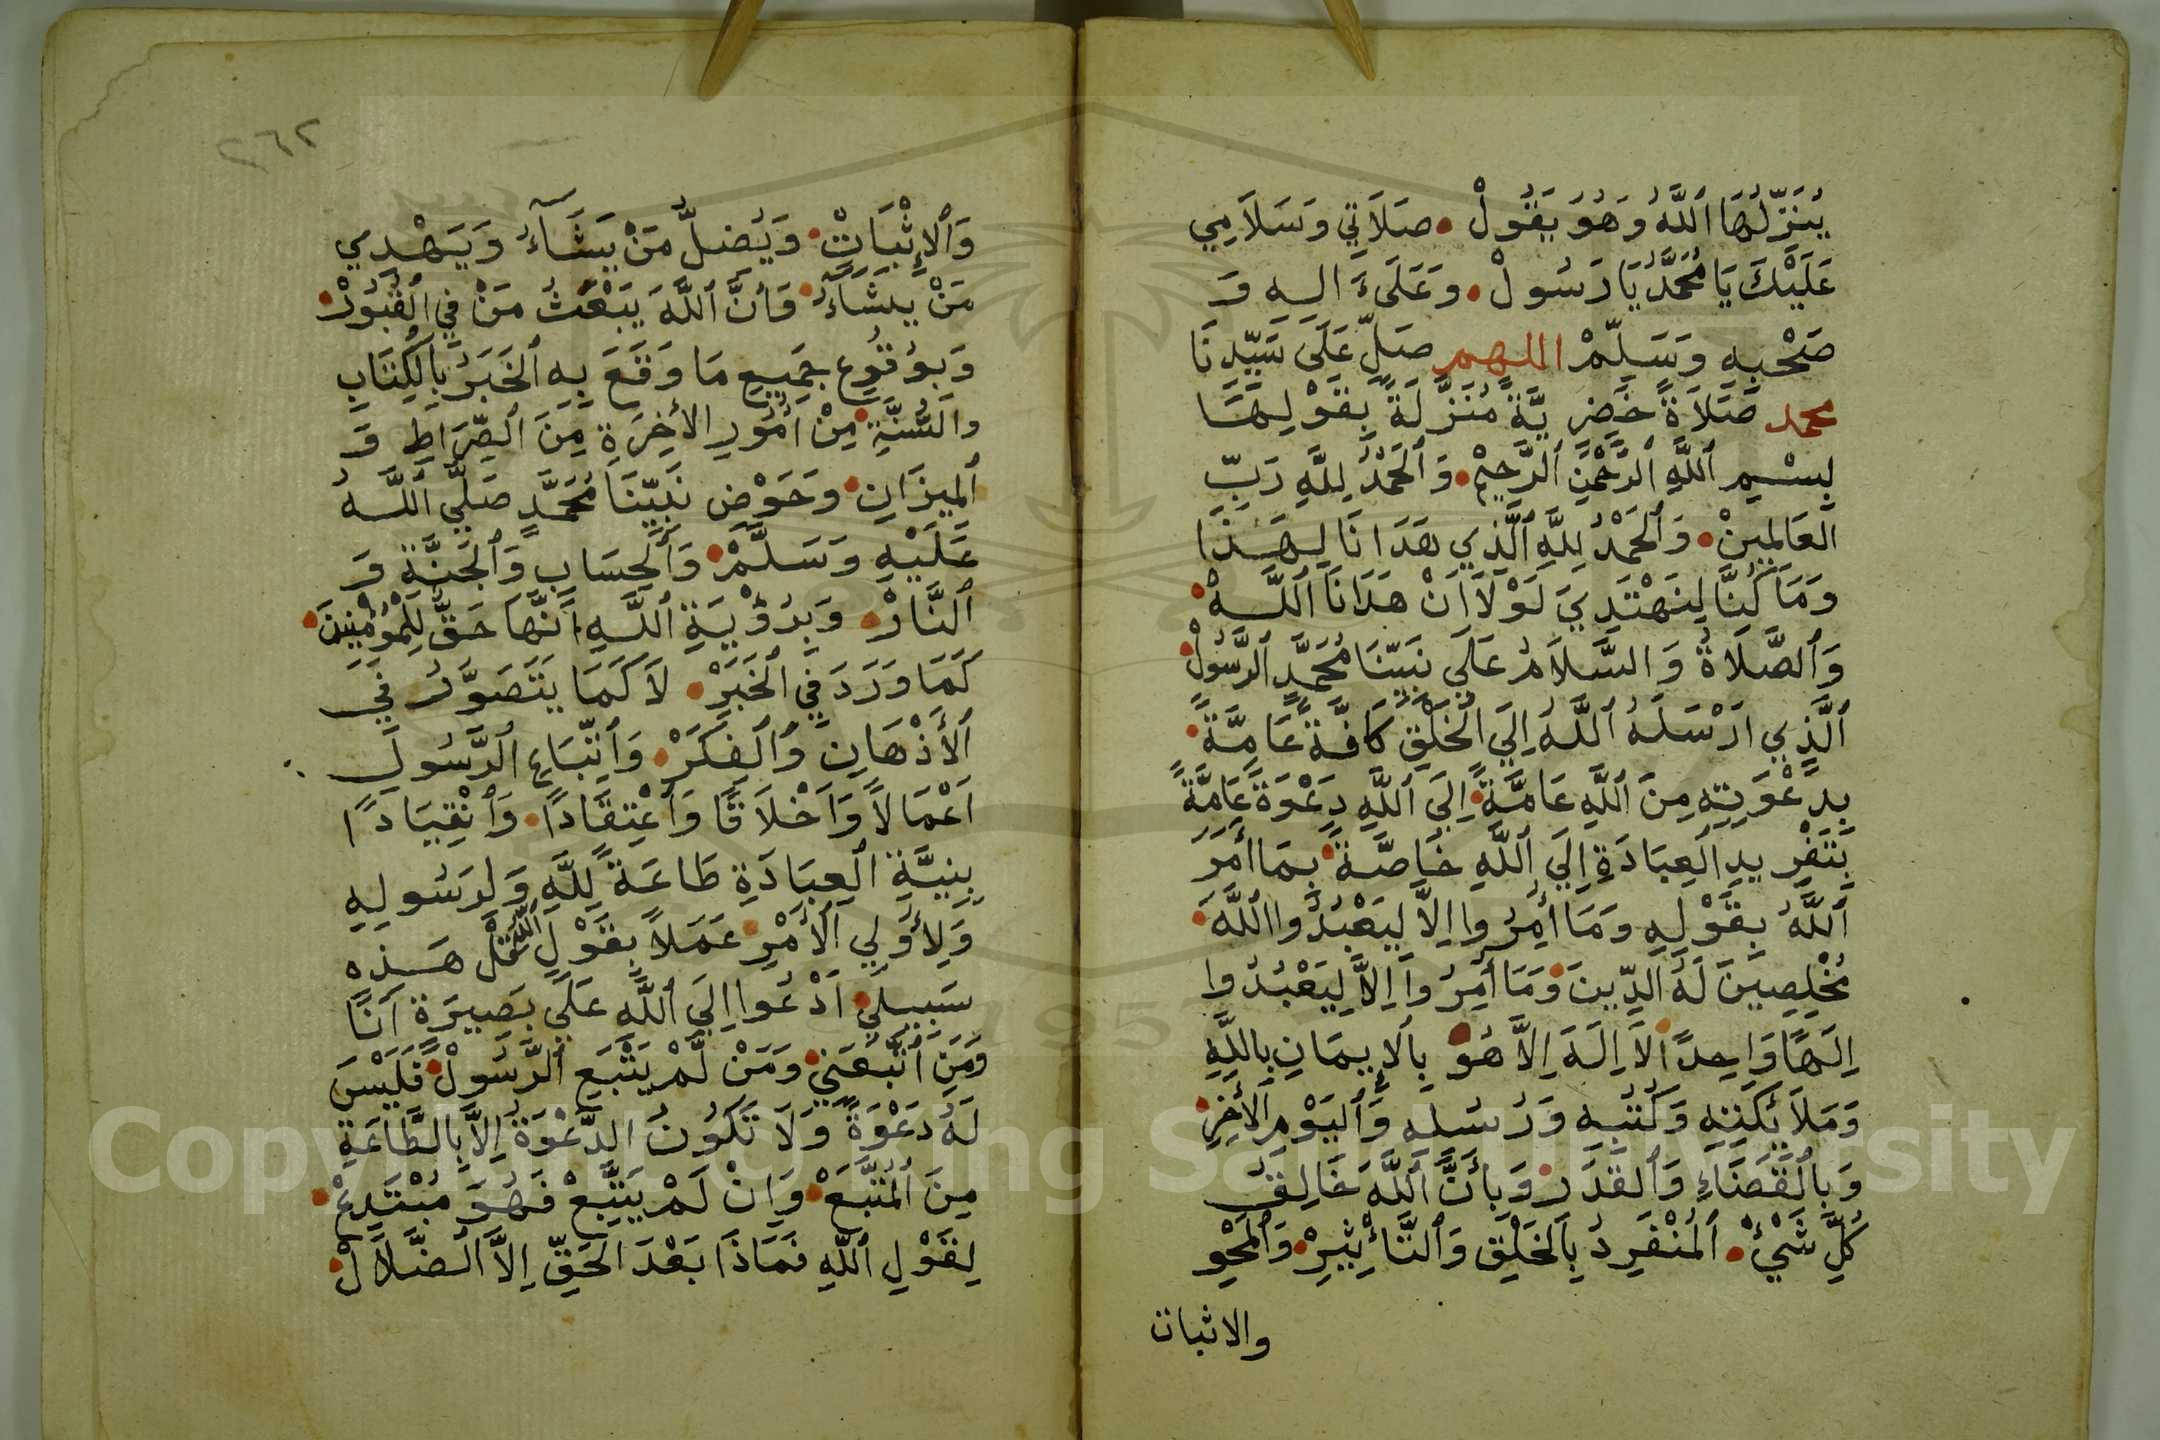 يُنَزِّلُهَا اللَّهُ وَهُوَ يَقُولْ • صَلَاتِي وَسَلَامِي
عَلَيْكَ يَا مُحَمَّدُ يَا رَسُولْ • وَعَلَىَ الِهِ وَ
صَحْبِهِ وَسَلِّمْ اللهم صَلِّ عَلَى سَيِّدِنَا
محمد صَلَاةً حَضِرِيَّةً مُنَزَّلَةً بِقَوْلِهَا
بِسْمِ اللَّهِ الرَّحْمَنِ الرَّحِيمْ • وَالْحَمْدُ لِلَّهِ رَبِّ
الْعَالَمِينْ • وَالْحَمْدُ لِلَّهِ الَّذِي هَدَانَا لِهَذَا
وَمَا كُنَّا لِنَهْتَدِيَ لَوْلَا اَنْ هَدَانَا اللَّهْ •
وَالصَّلَاةُ وَالسَّلَامُ عَلَى نَبِيِّنَا مُحَمَّدٍ الرَّسُولْ •
الَّذِي ارْسَلَهُ اللَّهُ اِلَى الْخَلْقِ كَافَّةً عَامَّةً •
بِدَعْوَتِهِ مِنَ اللَّهِ عَامَّةً • اِلَى اللَّهِ دَعْوَةً عَامَّةً
بِتَفْرِيدِ الْعِبَادَةِ اِلَى اللَّهِ خَاصَّةً • بِمَا اَمَرَ
اللَّهُ بِقَوْلِهِ وَمَا اُمِرُوا اِلَّا لِيَعْبُدُوا اللَّهَ •
مُخْلِصِينَ لَهُ الدِّينَ • وَمَا اُمِرُوا اِلَّا لِيَعْبُدُوا
اِلَهًا وَاحِدًا • لَا اِلَهَ اِلَّا هُوَ • بِالْإِيمَانِ بِاللَّهِ
وَمَلَائِكَتِهِ وَكُتُبِهِ وَرُسُلِهِ وَالْيَوْمِ الْأَخِرِ •
وَبِالْقَضَاءِ وَالْقَدَرْ • وَبِأَنَّ اللَّهَ خَالِقُ
كُلِّ شَيْءْ • الْمُنْفَرِدُ بِالْخَلْقِ وَالتَّأْثِيرْ • وَالْمَحْوِ
والاثبات
٢٦٢
وَالْإِثْبَاتْ • وَيُضِلُّ مَنْ يَشَآءُ وَيَهْدِي
مَنْ يَشَآءُ • وَأَنَّ اللَّهَ يَبْعَثُ مَنْ فِي الْقُبُورْ •
وَبِوُقُوعِ جَمِيعِ مَا وَقَعَ بِهِ الْخَبَرُ بِالْكِتَابِ
وَالسُّنَّةِ • مِنْ اُمُورِ الْأَخِرَةِ مِنَ الصِّرَاطِ وَ
الْمِيزَانِ • وَحَوْضِ نَبِيِّنَا مُحَمَّدٍ صَلَّى اللَّهُ
عَلَيْهِ وَسَلَّمْ • وَالْحِسَابِ وَالْجَنَّةِ وَ
النَّارْ • وَبِرُؤْيَةِ اللَّهِ اَنَّهَا حَقٌّ لِلْمُؤْمِنِينَ •
كَمَا وَرَدَ فِي الْخَبَرْ • لَا كَمَا يَتَصَوَّرُ فِي
الْأَذْهَانِ وَالْفِكَرْ • وَاتِّبَاعِ الرَّسُولِ
اَعْمَالًا وَاَخْلَاقًا وَاعْتِقَادًا • وَانْقِيَادًا
بِنِيَّةِ الْعِبَادَةِ طَاعَةً لِلَّهِ وَلِرَسُولِهِ
وَلِأُولِي الْأَمْرِ • عَمَلًا بِقَوْلِ اللَّهِ قُلْ هَذِهِ
سَبِيلِي • اَدْعُوا اِلَى اللَّهِ عَلَى بَصِيرَةٍ اَنَا
وَمَنِ اتَّبَعَنِي • وَمَنْ لَمْ يَتْبَعِ الرَّسُولْ • فَلَيْسَ
لَهُ دَعْوَةٌ وَلَا تَكُونُ الدَّعْوَةُ اِلَّا بِالطَّاعَةِ
مِنَ الْمُتَّبَعْ • وَاِنْ لَمْ يَتَّبِعْ فَهُوَ مُبْتَدِعْ •
لِقَوْلِ اللَّهِ فَمَاذَا بَعْدَ الْحَقِّ اِلَّا الضَّلَالْ •
Copyright © King Saud University